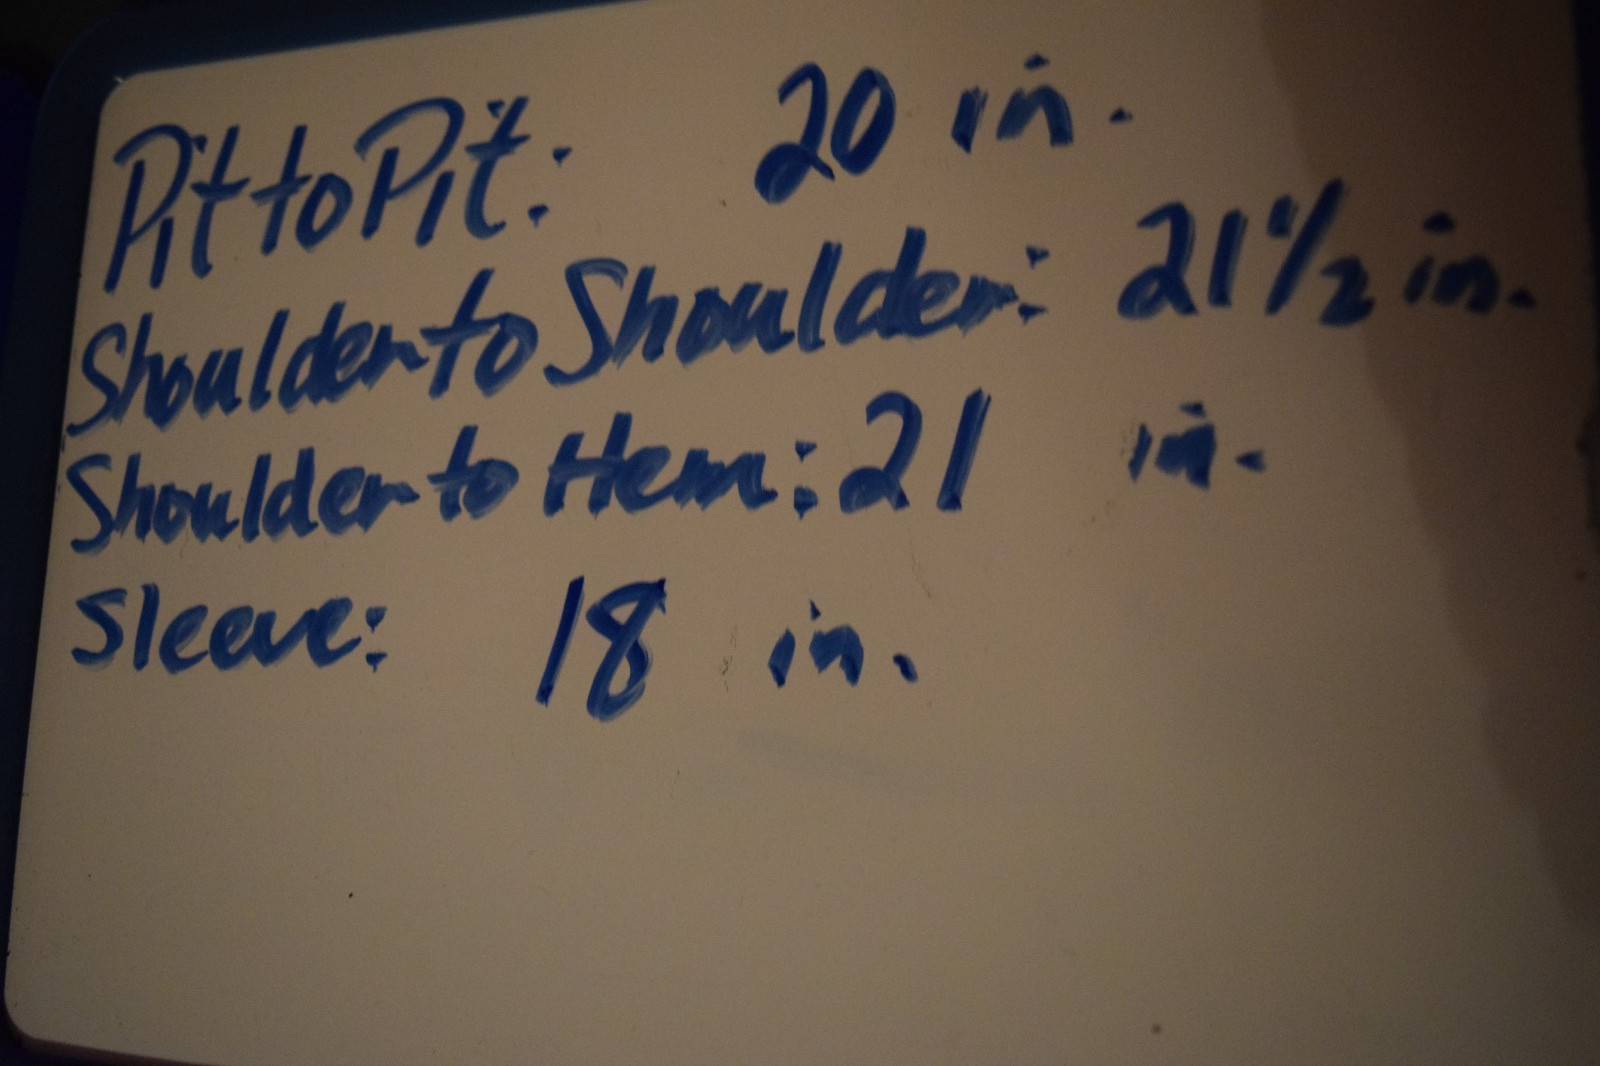 Pit to Pit: 20 in.
Shoulder to Shoulder: 21 1/2 in.
Shoulder to Hem: 21 in.
Sleeve: 18 in.